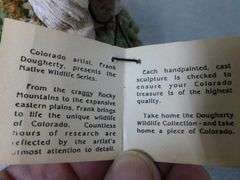 Colorado artist, Frank
Dougherty, presents the
Native Wildlife Series.
From the craggy Rocky
Mountains to the expansive
eastern plains, Frank brings
to life the unique wildlife
of Colorado. Countless
hours of research are
reflected by the artist's
utmost attention to detail.
Each handpainted, cast
sculpture is checked to
ensure your Colorado
treasure is of the highest
quality.
Take home the Dougherty
Wildlife Collection - and take
home a piece of Colorado.